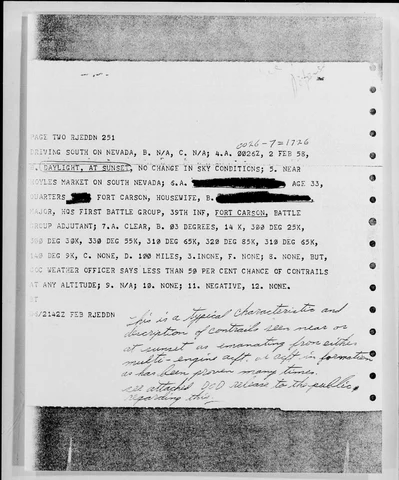 PAGE TWO RJEDDN 251
DRIVING SOUTH ON NEVADA, B. N/A, C. N/A; 4.A. 0026Z, 2 FEB 58,
0026-7=1726
DAYLIGHT, AT SUNSET, NO CHANGE IN SKY CONDITIONS; 5. NEAR
OYLES MARKET ON SOUTH NEVADA; 6.A. AGE 33,
QUARTERS FORT CARSON, HOUSEWIFE, B.
MAJOR, HQS FIRST BATTLE GROUP, 39TH INF, FORT CARSON, BATTLE
GROUP ADJUTANT; 7.A. CLEAR, B. 03 DEGREES, 14 K, 300 DEG 25K,
300 DEG 30K, 330 DEG 55K, 310 DEG 65K, 320 DEG 85K, 310 DEG 65K,
DEG 9K, C. NONE, D. 100 MILES, 3.INONE, F. NONE; 8. NONE, BUT,
WEATHER OFFICER SAYS LESS THAN 50 PER CENT CHANCE OF CONTRAILS
AT ANY ALTITUDE; 9. N/A; 10. NONE; 11. NEGATIVE, 12. NONE.
BT
/2142Z FEB RJEDDN
This is a typical characteristic and
description of contrails seen near or
at sunset as emanating from either
multi-engine acft, or acft in formation
as has been proven many times.
see attached DOD release to the public
regarding this.